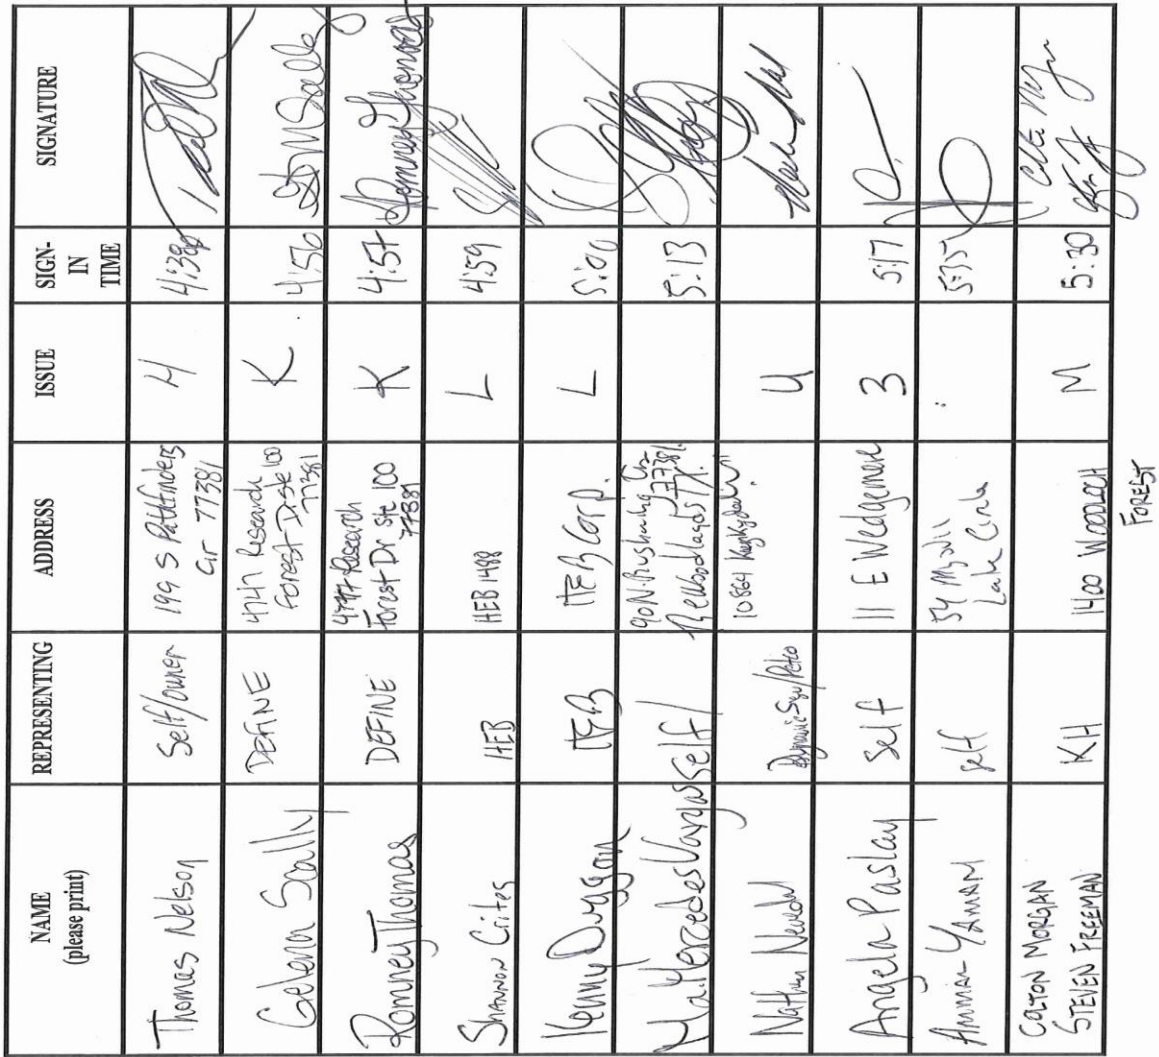 NAME
(please print)
REPRESENTING
ADDRESS
ISSUE
SIGN-
IN
TIME
SIGNATURE
Thomas Nelson
Self/owner
199 S Pathfinders
Cir 77381
4
Selena Scally
DEFINE
4747 Research
Forest Dr. ste 100
77381
K
4:56
Romney Thomas
DEFINE
4747 Research
Forest Dr ste 100
77381
K
4:57
Romney Thomas
Shannon Crites
HEB
HEB 1488
L
4:59
Kenny Duggan
HEB
HEB Corp.
L
5:00
Ma Mercedes Vargas
Self/
90 N.
77381
5:13
Nathan
10864
4
Angela Paslay
Self
11 E Wedgemere
3
5:17
Yamam
self
54
Lake Circle
5:15
COLTON MORGAN
STEVEN FREEMAN
KH
1400 WOODLOCH
FOREST
M
5:30